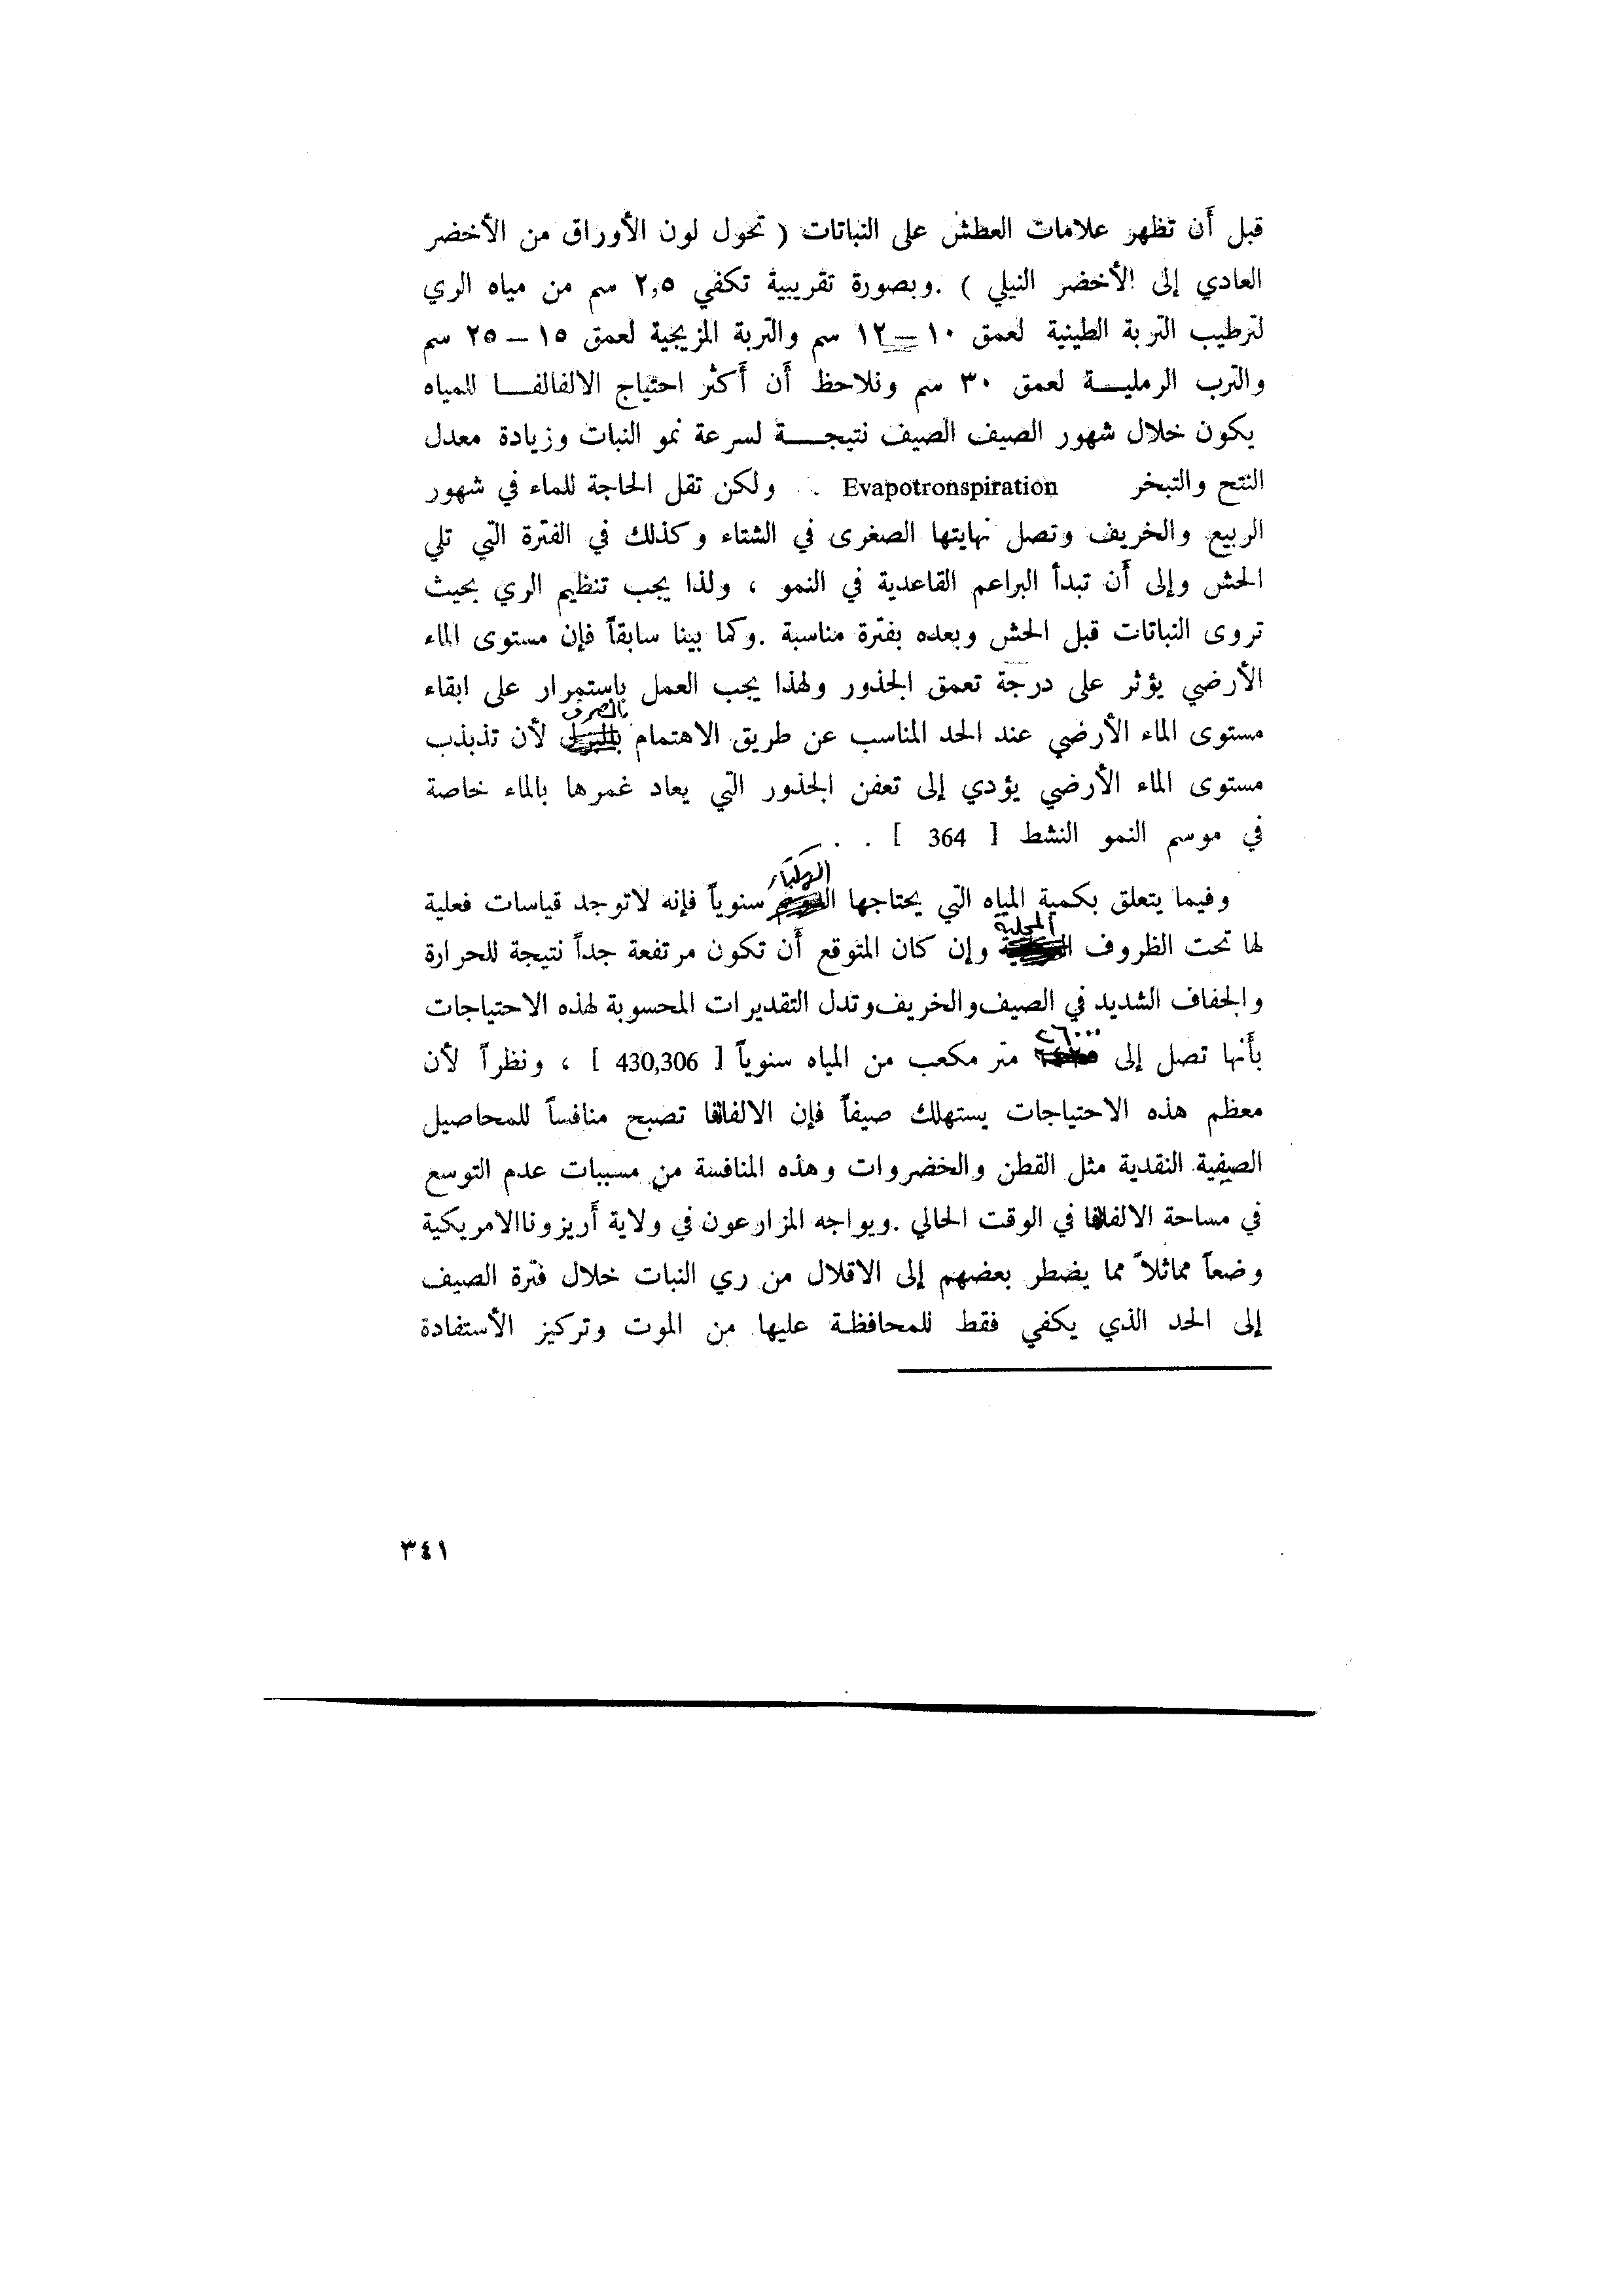 قبل أن تظهر علامات العطش على النباتات ( تحول لون الأوراق من الأخضر
العادي إلى الأخضر النيلي ) .وبصورة تقريبية تكفي ٢,٥ سم من مياه الري
لترطيب التربة الطينية لعمق ١٠ – ١٢ سم والتربة المزيجية لعمق ١٥ – ٢٥ سم
والترب الرمليــة لعمق ٣٠ سم ونلاحظ أن أكثر احتياج الالفالفــا للمياه
يكون خلال شهور الصيف الصيف نتيجــة لسرعة نمو النبات وزيادة معدل
النتح والتبخر Evapotronspiration . ولكن تقل الحاجة للماء في شهور
الربيع والخريف وتصل نهايتها الصغرى في الشتاء وكذلك في الفترة التي تلي
الحش وإلى أن تبدأ البراعم القاعدية في النمو ، ولذا يجب تنظيم الري بحيث
تروى النباتات قبل الحش وبعده بفترة مناسبة .وكما بينا سابقاً فإن مستوى الماء
الأرضي يؤثر على درجة تعمق الجذور ولهذا يجب العمل باستمرار على ابقاء
مستوى الماء الأرضي عند الحد المناسب عن طريق الاهتمام بالصرف لأن تذبذب
مستوى الماء الأرضي يؤدي إلى تعفن الجذور التي يعاد غمرها بالماء خاصة
في موسم النمو النشط [ 364 ] . .
وفيما يتعلق بكمية المياه التي يحتاجها الهكتار سنوياً فإنه لاتوجد قياسات فعلية
لها تحت الظروف المحلية وإن كان المتوقع أن تكون مرتفعة جداً نتيجة للحرارة
والجفاف الشديد في الصيف والخريف وتدل التقديرات المحسوبة لهذه الاحتياجات
بأنها تصل إلى ٢٦٠٠٠ متر مكعب من المياه سنوياً [ 430,306 ] ، ونظراً لأن
معظم هذه الاحتياجات يستهلك صيفاً فإن الالفافا تصبح منافساً للمحاصيل
الصيفية النقدية مثل القطن والخضروات وهذه المنافسة من مسببات عدم التوسع
في مساحة الالفافا في الوقت الحالي .ويواجه المزارعون في ولاية أريزونا الامريكية
وضعاً مماثلاً مما يضطر بعضهم إلى الاقلال من ري النبات خلال فترة الصيف
إلى الحد الذي يكفي فقط للمحافظة عليها من الموت وتركيز الأستفادة
٣٤١